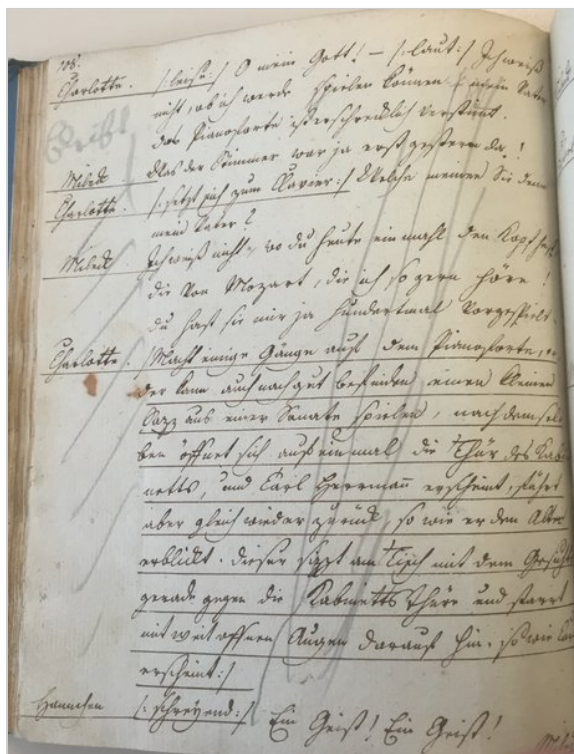 108.
Charlotte. /: leise :/ O mein Gott! – /: laut :/ Ich weiß
nicht, ob ich werde spielen können lieber Vater
das Pianoforte ist erschrecklich verstimmt.
Milech Was der Stimmer war ja erst gestern da!
Charlotte. /: setzt sich zum Clavier :/ Welche meinen Sie denn
mein Vater?
Milech Ich weiß nicht, wo du heute einmahl den Kopf hast
die von Mozart, die ich so gern höre!
du hast sie mir ja hundertmal vorgespielt.
Charlotte. /: Macht einige Gänge auf dem Pianoforte, o
der kann auch nach gut befinden einen kleinen
Satz aus einer Sonate spielen, nach demsel
ben öffnet sich auf einmal die Thür des Kabi
netts, und Carl Herrmann erscheint, fährt
aber gleich wieder zurück, so wie er den Alten
erblickt. dieser sitzt am Tisch mit dem Gesicht
gerade gegen die Kabinetts Thüre und starrt
mit weit offnen Augen darauf hin. so wie Carl
erscheint :/
Hannchen /: schreyend :/ Ein Geist! Ein Geist!